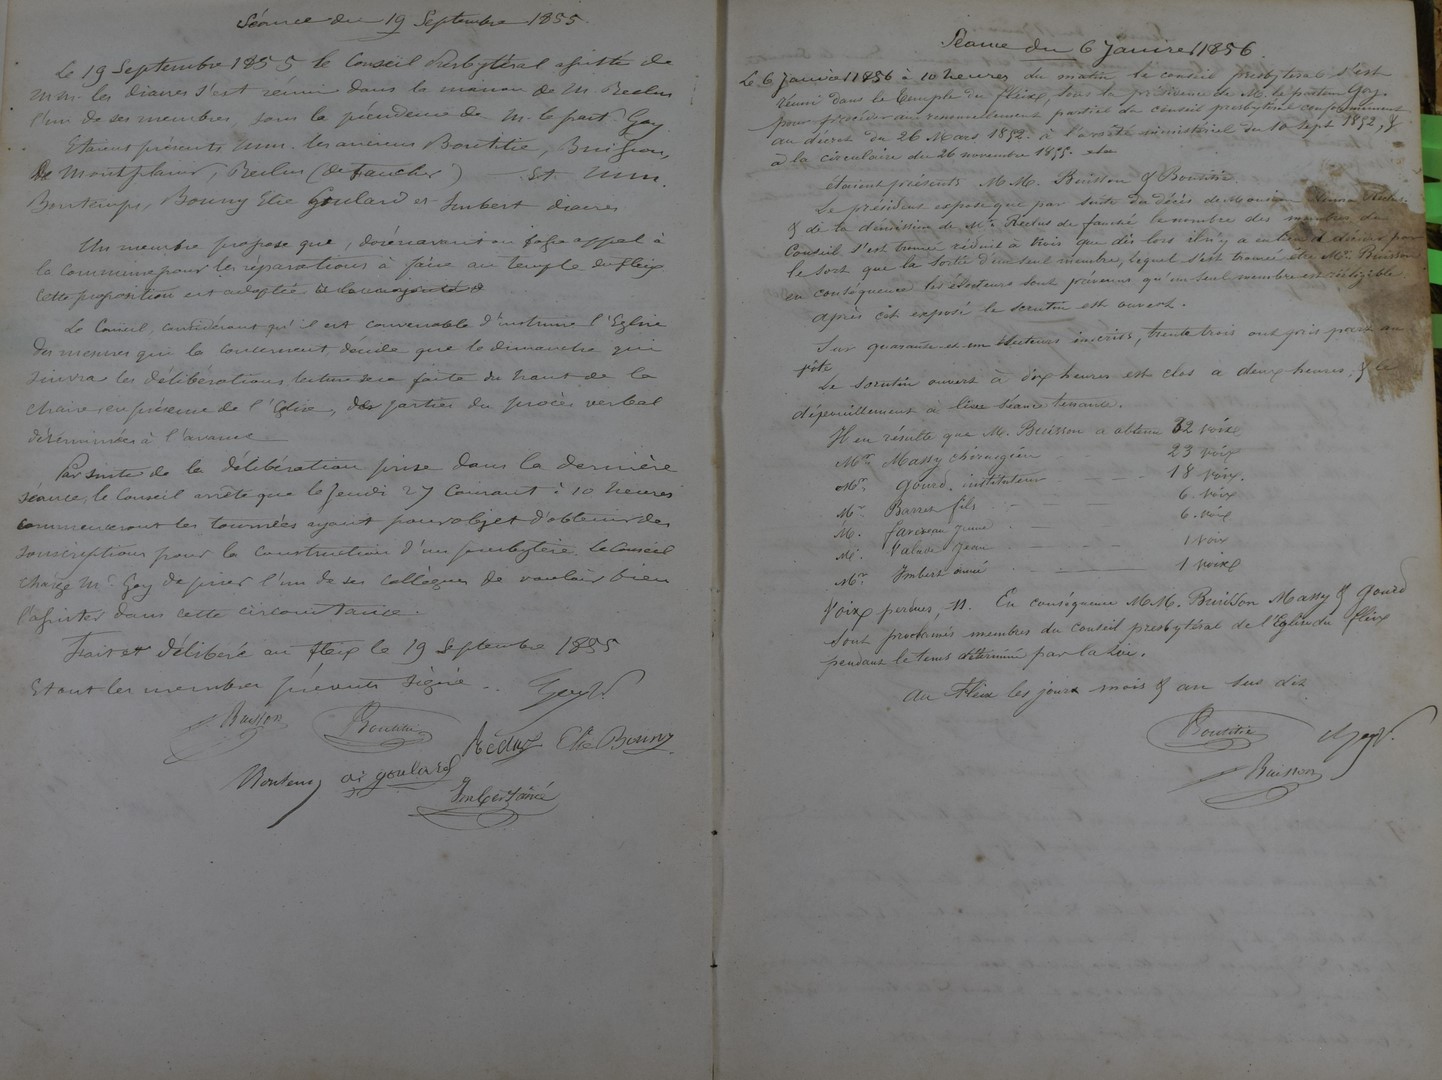 Séance du 19 Septembre 1855.
Le 19 Septembre 1855 le Conseil Presbytéral assisté de
M.M. les diacres s'est réuni dans la maison de M. Reclus
l'un de ses membres, sous la présidence de M. le past. Goy
Etaient présents M.M. les anciens Boutitie, Buisson,
de Montplaisir, Reclus (de Fauché) — et M.M.
Bontemps, Bouny Elie Goulard et Imbert diacres
Un membre propose que, dorénavant on fasse appel à
la commune pour les réparations à faire au temple du fleix
Cette proposition est adoptée
Le Conseil, considérant qu'il est convenable d'instruire l'Eglise
des mesures qui la concernent, décide que le dimanche qui
suivra les délibérations lecture sera faite du haut de la
chaire, en présence de l'Eglise, des parties du procès verbal
déterminées à l'avance
Par suite de la délibération prise dans la dernière
séance, le Conseil arrête que le Jeudi 27 Courant à 10 heures
commenceront les tournées ayant pour objet d'obtenir des
souscriptions pour la construction d'un presbytère. Le Conseil
charge Mr. Goy de prier l'un de ses collègues de vouloir bien
l'assister dans cette circonstance.
Fait et délibéré au fleix le 19 Septembre 1855
Et ont les membres présents signé.. Goy
Buisson Boutitie Reclus Elie Bouny
Bontemps goulard Imbert aîné
Séance du 6 Janvier 1856.
Le 6 Janvier 1856 à 10 heures du matin le conseil presbytéral s'est
réuni dans le temple du fleix, sous la présidence de M. le pasteur Goy.
pour procéder au renouvellement partiel du conseil presbytéral conformément
au décret du 26 Mars 1852. à l'arrêté ministériel du 10 Sept 1852, &
à la circulaire du 26 novembre 1855.
étaient présents M.M. Buisson & Boutitie.
Le président expose que par suite du décès de Monsieur Reclus
& de la démission de Mr. Reclus de fauché le nombre des membres du
Conseil s'est trouvé réduit à trois que dès lors il n'y a eu lieu d
le sort que la sortie d'un seul membre, lequel s'est trouvé être Mr. Buisson
en conséquence les électeurs sont prévenus qu'un seul membre est rééligible.
après cet exposé le scrutin est ouvert.
Sur quarante et un électeurs inscrits, trente trois ont pris part au
vote
Le scrutin ouvert à dix heures est clos à deux heures, & le
dépouillement a lieu séance tenante.
Il en résulte que M. Buisson a obtenu 32 voix
Mr. Massy chirurgien 23 voix
Mr. Gourd. instituteur 18 voix.
Mr. Barret fils 6. voix
M. Jeune 6. voix
Mr. Valade Jean 1 voix
Mr. Imbert aîné 1 voix
Voix perdues, 11. En conséquence M.M. Buisson Massy & Gourd
sont proclamés membres du conseil presbytéral de l'Eglise du fleix
pendant le tems déterminé par la Loi.
au Fleix les jours mois & an sus dit
Boutitie Goy
Buisson